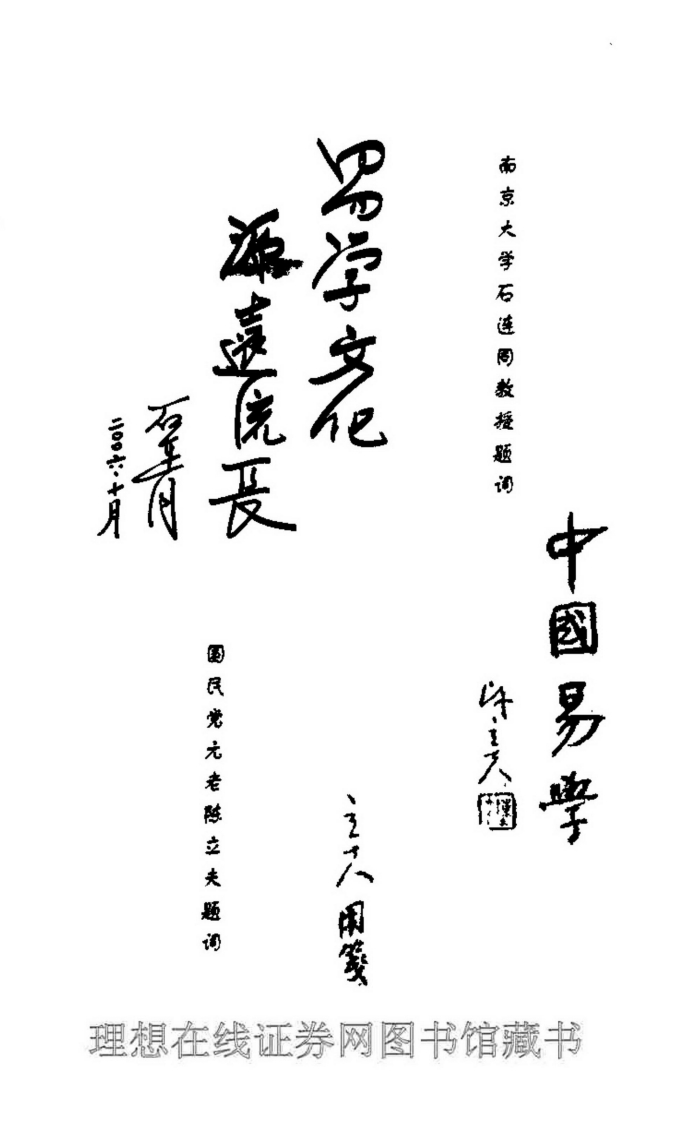 南京大学石连同教授题词
易学文化
源远流长
石連同
二〇〇六·十月
中國易學
陈立夫
立夫用箋
國民党元老陈立夫题词
理想在线证券网图书馆藏书